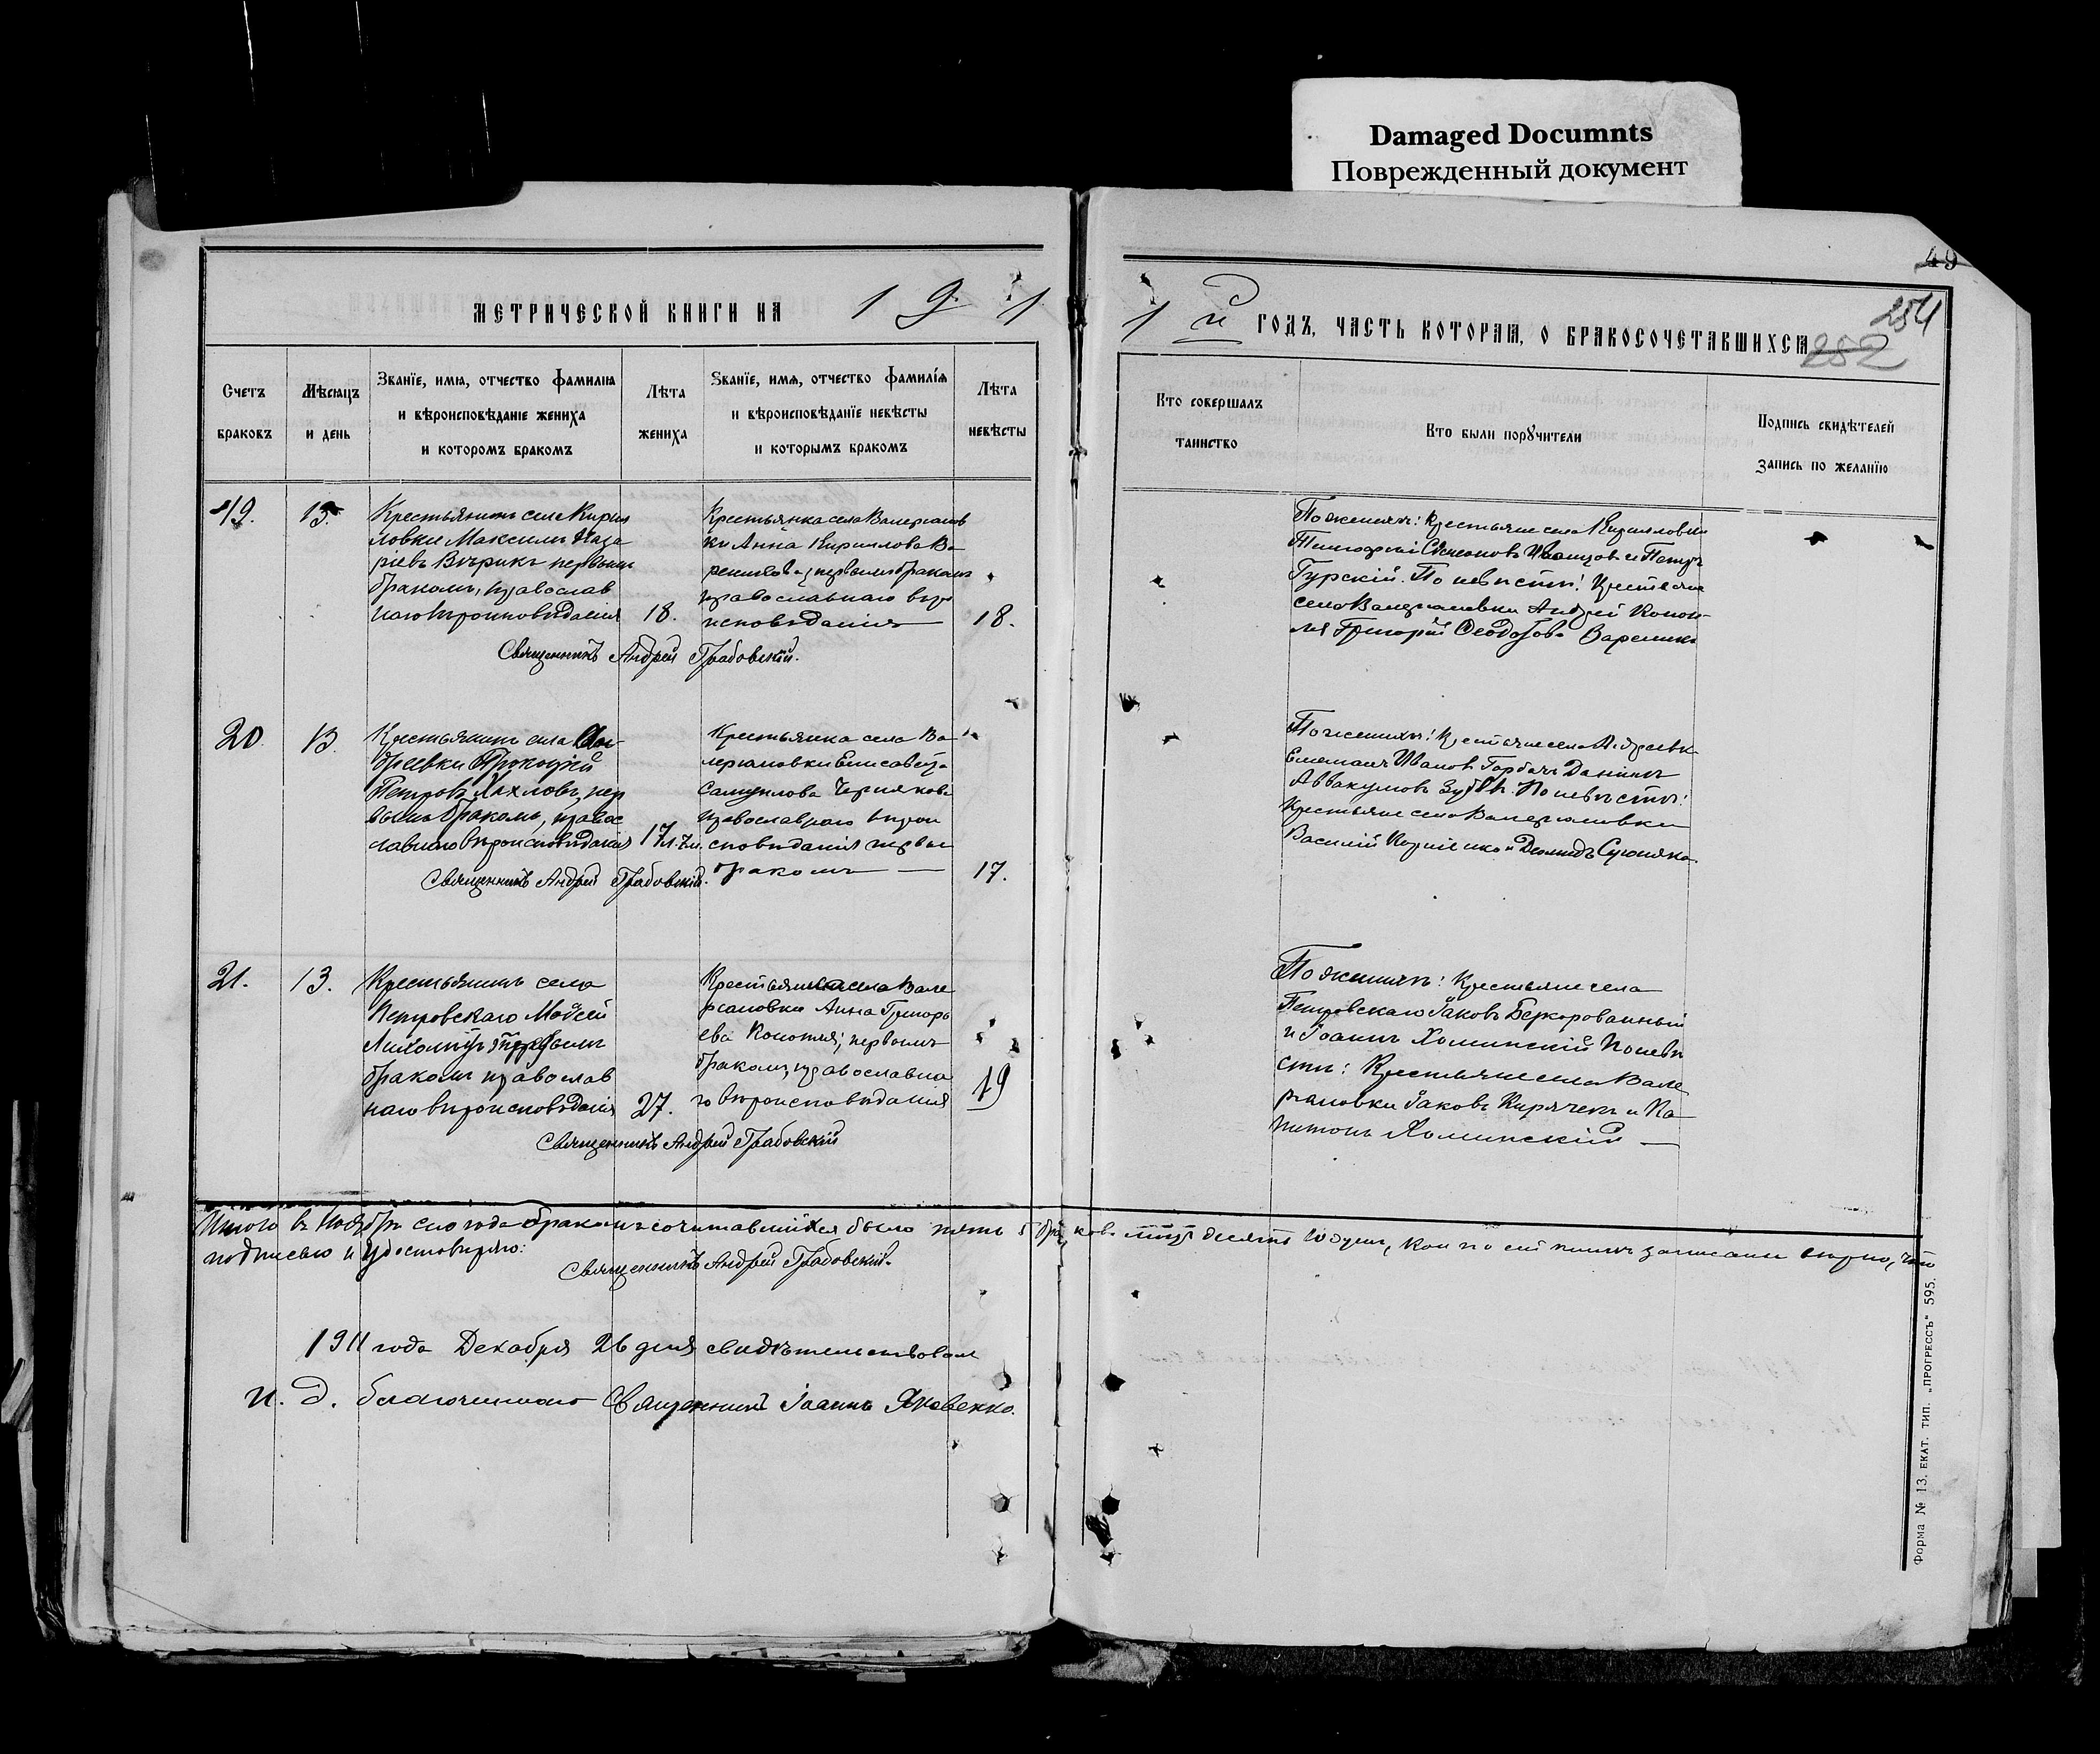 Damaged Documnts
Поврежденный документ
49
254
252
МЕТРИЧЕСКОЙ КНИГИ НА 191
1 й ГОДЪ, ЧАСТЬ КОТОРАЯ, О БРАКОСОЧЕТАВШИХСЯ
Счетъ браковъ
Мѣсяцъ и день
Званїе, имя, отчество фамилия
и вѣроисповѣданіе жениха
и которомъ бракомъ
Лѣта жениха
Званїе, имя, отчество фамилїя
и вѣроисповѣданїе невѣсты
и которымъ бракомъ
Лѣта невѣсты
Кто совершалъ таинство
Кто были поручители
Подпись свидѣтелей
Запись по желанїю
19.
13.
Крестьянинъ села Кирил
ловки Максимъ Наза
ріевъ Вирикъ первымъ
бракомъ, православ
наго вѣроисповѣданія
18.
Крестьянка села Валериянов
ки Анна Кириллова Ва
первымъ бракомъ
православнаго вѣро
исповѣданія
18.
Священникъ Андрей Грабовскій.
По женихѣ: Крестьяне села Кирилловки
Семеновъ Иванцовъ и Петръ
Гурскій. По невѣстѣ: Крестьяне
села Валериановки Андрей Коноп
ля Григорій Ѳеодосовъ Вареникъ
20
13.
Крестьянинъ села Ан
дреевки Прокопій
Петровъ Хахловъ, пер
вымъ бракомъ, правос
лавнаго вѣроисповѣданія
17 л. 7 м.
Крестьянка села Ва
лериановки Елисавета
Самуилова Чернякова
православнаго вѣрои
сповѣданія первымъ
бракомъ
17.
Священникъ Андрей Грабовскій.
По женихѣ: Крестьяне села Андреевки
Емельянъ Ивановъ Горбачъ Даніилъ
Аввакумовъ Зубъ. По невѣстѣ:
Крестьяне села Валериановки
Василій Корніенко и Демидъ
21.
13.
Крестьянинъ села
Петровскаго Моѵсей
первымъ
бракомъ православ
наго вѣроисповѣданія
27.
Крестьянка села Вале
риановки Анна Григорь
ева Конопля, первымъ
бракомъ, православна
го вѣроисповѣданія
19
Священникъ Андрей Грабовскій
По женихѣ: Крестьяне села
Петровскаго Іаковъ
и Іоаннъ Хоминскій По невѣ
стѣ: Крестьяне села Вале
риановки Іаковъ Кирячекъ и Ка
питонъ Хоминскій
Итого въ Ноябрѣ сего года бракомъ сочитавшихся было пять 5 браковъ десять 10 душъ, кои по сей книгѣ записаны вѣрно, что
подписью и удостовѣряю:
Священникъ Андрей Грабовскій.
1911 года Декабря 26 дня свидѣтельствовалъ
и. д. благочиннаго Священникъ Іоаннъ Яковенко.
Форма № 13. ЕКАТ. ТИП. „ПРОГРЕССЪ" 595.